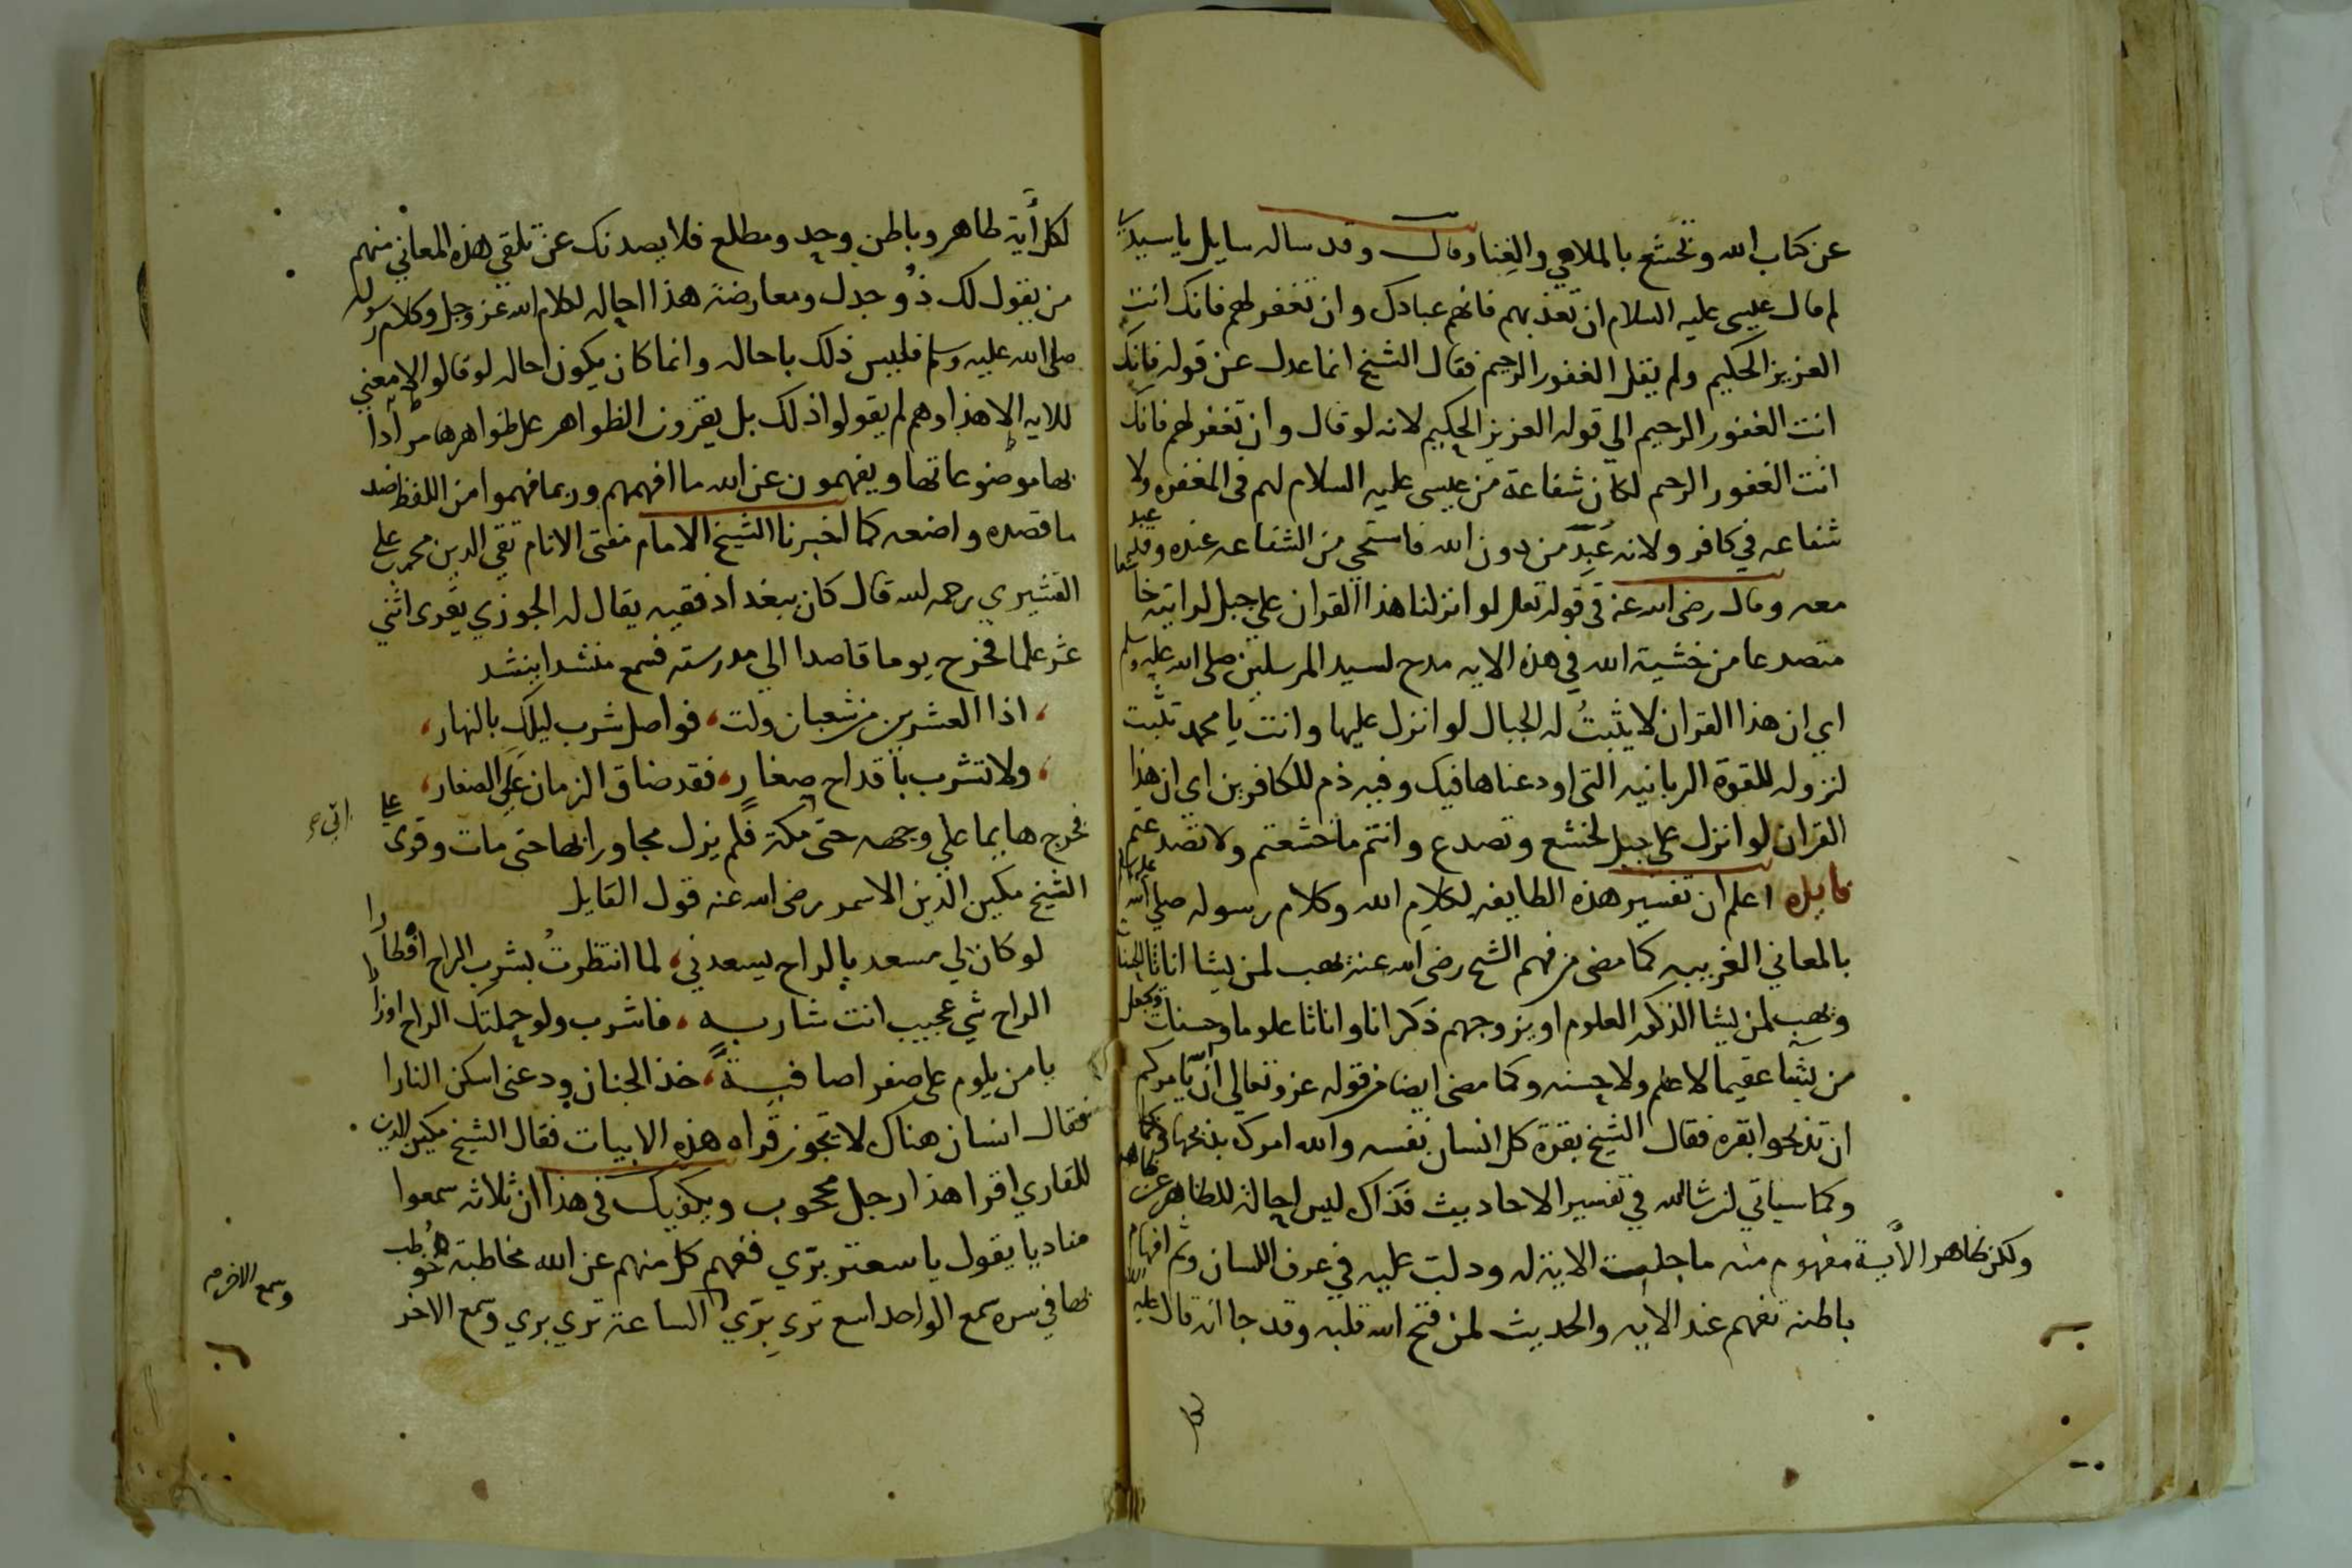 عن كتاب الله وتخشع بالملاهي والغنا وقال وقد ساله سايل يا سيدي
لم قال عيسى عليه السلام ان تعذبهم فانهم عبادك وان تغفر لهم فانك انت
العزيز الحكيم ولم يقل الغفور الرحيم فقال الشيخ انما عدل عن قوله فانك
انت الغفور الرحيم الي قوله العزيز الحكيم لانه لو قال وان تغفر لهم فانك
انت الغفور الرحيم لكان شفاعة من عيسى عليه السلام لهم فى المغفره ولا
شفاعه في كافر ولانه عُبِدَ من دون الله فاستحي من الشفاعه عنده وقد عبد
معه وقال رضى الله عنه فى قوله تعلى لو انزلنا هذا القران علي جبل لرايته خاشعا
متصدعا من خشية الله في هذه الايه مدح لسيد المرسلين صلى الله عليه وسلم
اي ان هذا القران لا يثبتُ له الجبال لو انزل عليها وانت يا محمد تثبت
لنزوله للقوة الربانيه التى اودعناها فيك وفيه ذم للكافرين اى ان هذا
القران لو انزل على جبل لخشع وتصدع وانتم ما خشعتم ولا تصدعتم
فايده اعلم ان تفسير هذه الطايفه لكلام الله وكلام رسوله صلي الله عليه وسلم
بالمعاني الغريبه كما مضى من فهم الشيخ رضى الله عنه يهب لمن يشا اناثا الحسنات
ويهب لمن يشا الذكور العلوم او يزوجهم ذكرانا واناثا علوما وحسنات ويجعل
من يشا عقيما لا علم ولا حسنه وكما مضى ايضا من قوله عز وتعالي ان الله يامركم
ان تذبحوا بقره فقال الشيخ بقرة كل انسان نفسه والله امرك بذبحها
وكما سياتي ان شا الله في تفسير الاحاديث فذاك ليس احالة للظاهر عن ظاهره
ولكن ظاهر الأية مفهوم منه ما جلبت الاية له ودلت عليه في عرف اللسان وثم افهام
باطنه تفهم عند الايه والحديث لمن فتح الله قلبه وقد جا انه قال عليه السلام
لكل أية ظاهر وباطن وحد ومطلع فلا يصدنك عن تلقي هذه المعاني منهم
من يقول لك ذو جدل ومعارضة هذا احاله لكلام الله عز وجل وكلام رسوله
صلى الله عليه وسلم فليس ذلك باحاله وانما كان يكون احاله لو قالوا لا معنى
للايه الا هذا وهم لم يقولوا ذلك بل يقرون الظواهر على ظواهرها مرادا
بها موضوعاتها ويفهمون عن الله ما افهمهم وربما فهموا من اللفظ ضد
ما قصده واضعه كما اخبرنا الشيخ الامام مفتى الانام تقي الدين محمد بن على
القشيري رحمه الله قال كان ببغداد فقيه يقال له الجوزي يقرى اثني
عشر علما فخرج يوما قاصدا الي مدرسته فسمع منشدا ينشد
اذا العشرين من شعبان ولت، فواصل شرب ليلك بالنهار،
ولا تشرب بأقداح صغار، فقد ضاق الزمان على الصغار،
فخرج هايما علي وجهه حتى مكة فلم يزل مجاورا بها حتى مات وقرى على
الشيخ مكين الدين الاسمر رضى الله عنه قول القايل
لو كان لي مسعد بالراح يسعدني، لما انتظرتُ بشرب الراح افطارا
الراح شي عجيب انت شاربه، فاشرب ولو حملتك الراح اوزارا
يا من يلوم على صفرا صافية، خذ الجنان ودعنى اسكن النارا
فقال انسان هناك لا تجوز قراه هذه الابيات فقال الشيخ مكين الدين
للقاري اقرا هذا رجل محجوب ويكفيك فى هذا ان ثلاثه سمعوا
مناديا يقول يا سعتر برّي ففهم كل منهم عن الله مخاطبة خوطب
بها في سره سمع الواحد اسع ترى بِرّي الساعة ترى بري وسمع الاخر
وسمع الاخر م